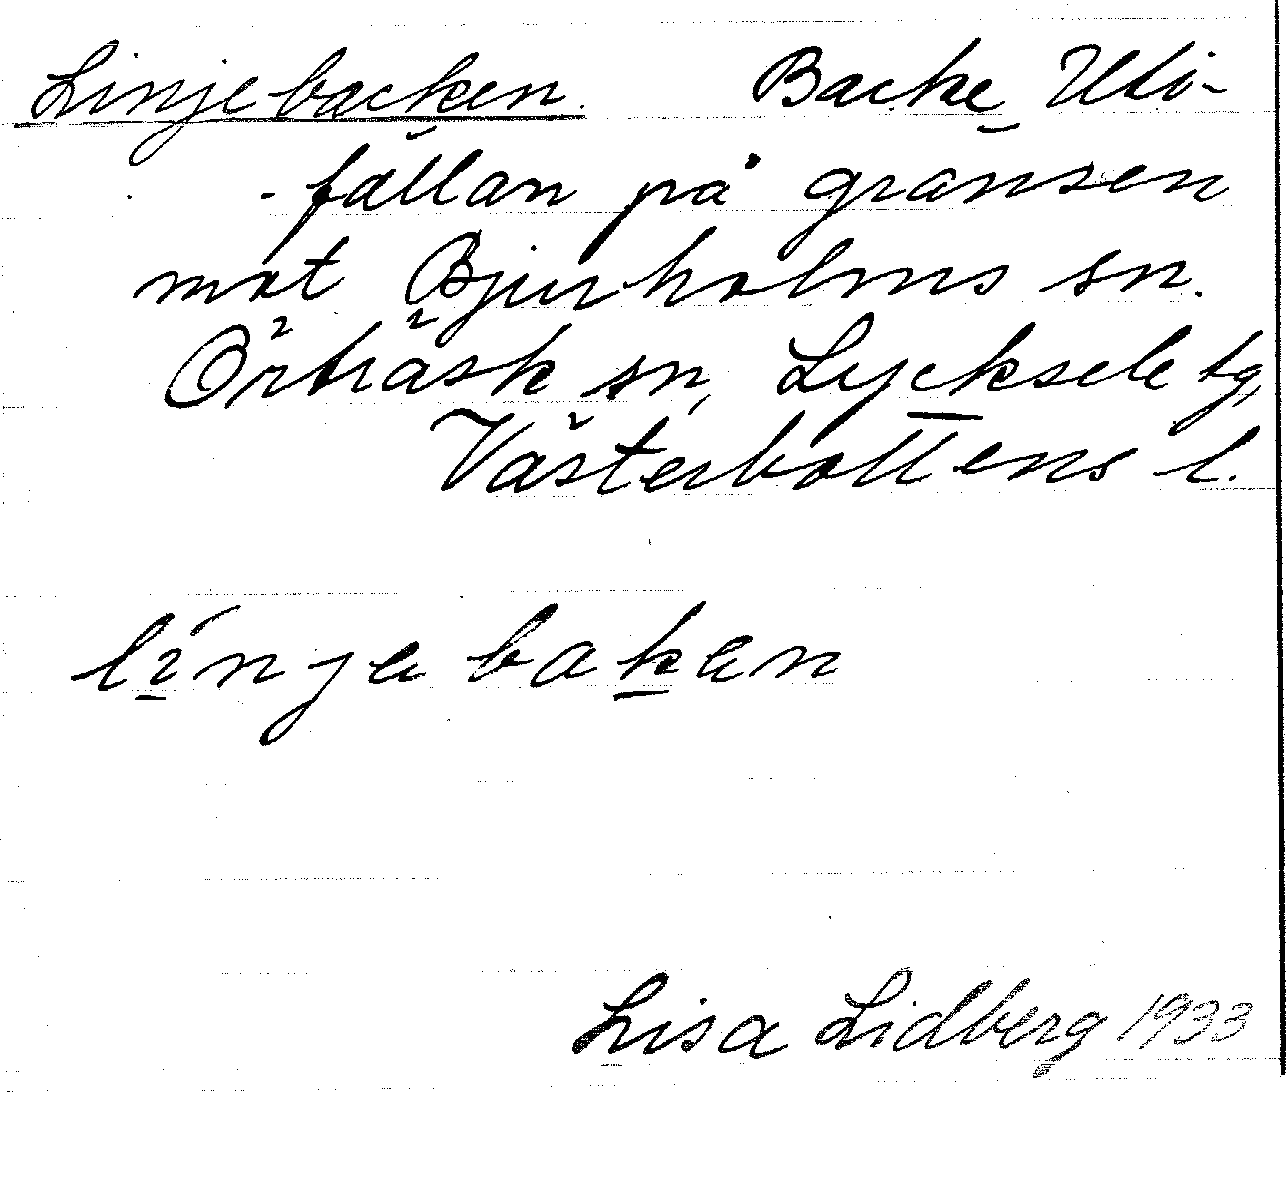 Linjebacken. Backe Uti-
-fällan på gränsen
mot Bjurholms sn.
Örträsk sn, Lycksele tg,
Västerbottens l.
linjebaken
Lisa Lidberg 1933